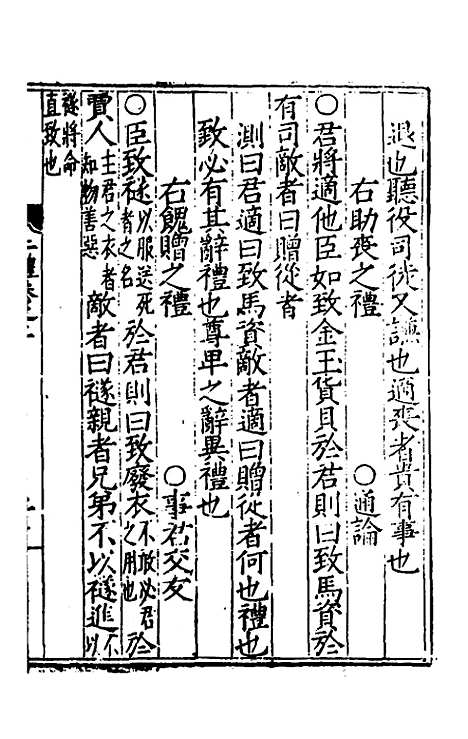 退也聽役司徒又謙也適喪者貴有事也
右助喪之禮　○通論
○君將適他臣如致金玉貨貝於君則曰致馬資於
有司敵者曰贈從者
測曰君適曰致馬資敵者適曰贈從者何也禮也
致必有其辭禮也尊卑之辭異禮也
右餽贈之禮　○事君交友
○臣致禭以服送死者之名於君則曰致廢衣不敢必君之用也於
賈人主君之衣者知物善惡敵者曰禭親者兄弟不以禭進不以
禭將命直致也